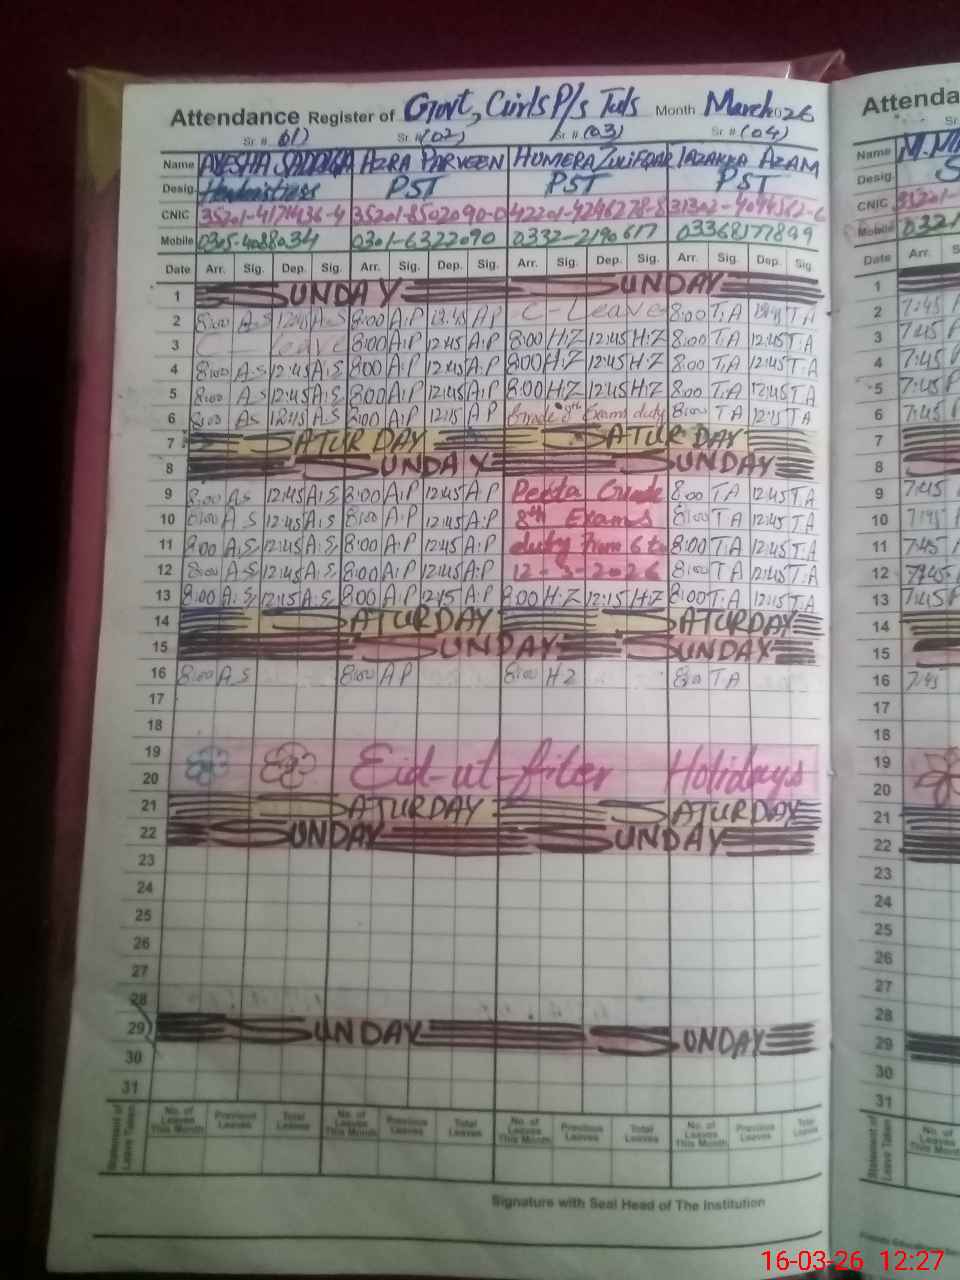 Attendance Register of Govt, Girls P/s Tuls Month March 2026
Sr # (01) Sr. # (02) Sr # (03) Sr. # (04)
Name AYESHA SADDIQA AZRA PARVEEN HUMERA Zulifqar TAZAKKA AZAM
Desig. Headmistress PST PST PST
CNIC
Mobile 0301-6322090 0332-2190617 03368177899
Date Arr. Sig. Dep. Sig. Arr. Sig. Dep. Sig. Arr. Sig. Dep. Sig. Arr. Sig. Dep. Sig.
1 SUNDAY SUNDAY
2 8:00 A.S 12:45 A.S 8:00 A.P 12:45 A.P C-Leave 8:00 T.A 12:45 T.A
3 C-leave 8:00 A.P 12:45 A.P 8:00 H.Z 12:45 H.Z 8:00 T.A 12:45 T.A
4 8:00 A.S 12:45 A.S 8:00 A.P 12:45 A.P 8:00 H.Z 12:45 H.Z 8:00 T.A 12:45 T.A
5 8:00 A.S 12:45 A.S 8:00 A.P 12:45 A.P 8:00 H.Z 12:45 H.Z 8:00 T.A 12:45 T.A
6 8:00 A.S 12:15 A.S 8:00 A.P 12:15 A.P Grade 8th Exams duty 8:00 T A 12:15 T A
7 SATURDAY SATURDAY
8 SUNDAY SUNDAY
9 8:00 A.S 12:45 A.S 8:00 A.P 12:45 A.P Pecta Grade 8:00 T A 12:45 T.A
10 8:00 A.S 12:45 A.S 8:00 A.P 12:45 A.P 8th Exams 8:00 T A 12:45 T.A
11 8:00 A.S 12:45 A.S 8:00 A.P 12:45 A.P duty from 6 to 8:00 T A 12:45 T.A
12 8:00 A.S 12:45 A.S 8:00 A.P 12:45 A.P 12-3-2026 8:00 T A 12:45 T.A
13 8:00 A.S 12:15 A.S 8:00 A.P 12:15 A.P 8:00 H.Z 12:15 H.Z 8:00 T.A 12:15 T.A
14 SATURDAY SATURDAY
15 SUNDAY SUNDAY
16 8:00 A S 8:00 A P 8:00 H Z 8:00 T A
17
18
19 Eid-ul-fiter Holidays
20
21 SATURDAY SATURDAY
22 SUNDAY SUNDAY
23
24
25
26
27
28
29 SUNDAY SUNDAY
30
31
Statement of Leave Taken
No. of Leaves This Month Previous Leaves Total Leaves No. of Leaves This Month Previous Leaves Total Leaves No. of Leaves This Month Previous Leaves Total Leaves No. of Leaves This Month Previous Leaves Total Leaves
Signature with Seal Head of The Institution
Name
Desig.
CNIC
Mobile
Date Arr
1
2 7:45
3 7:45
4 7:45
5 7:45
6 7:45
7
8
9 7:45
10 7:45
11 7:45
12 7:45
13 7:45
14
15
16 7:45
17
18
19
20
21
22
23
24
25
26
27
28
29
30
31
Statement of Leave Taken
No. of Leaves This Month
16-03-26 12:27